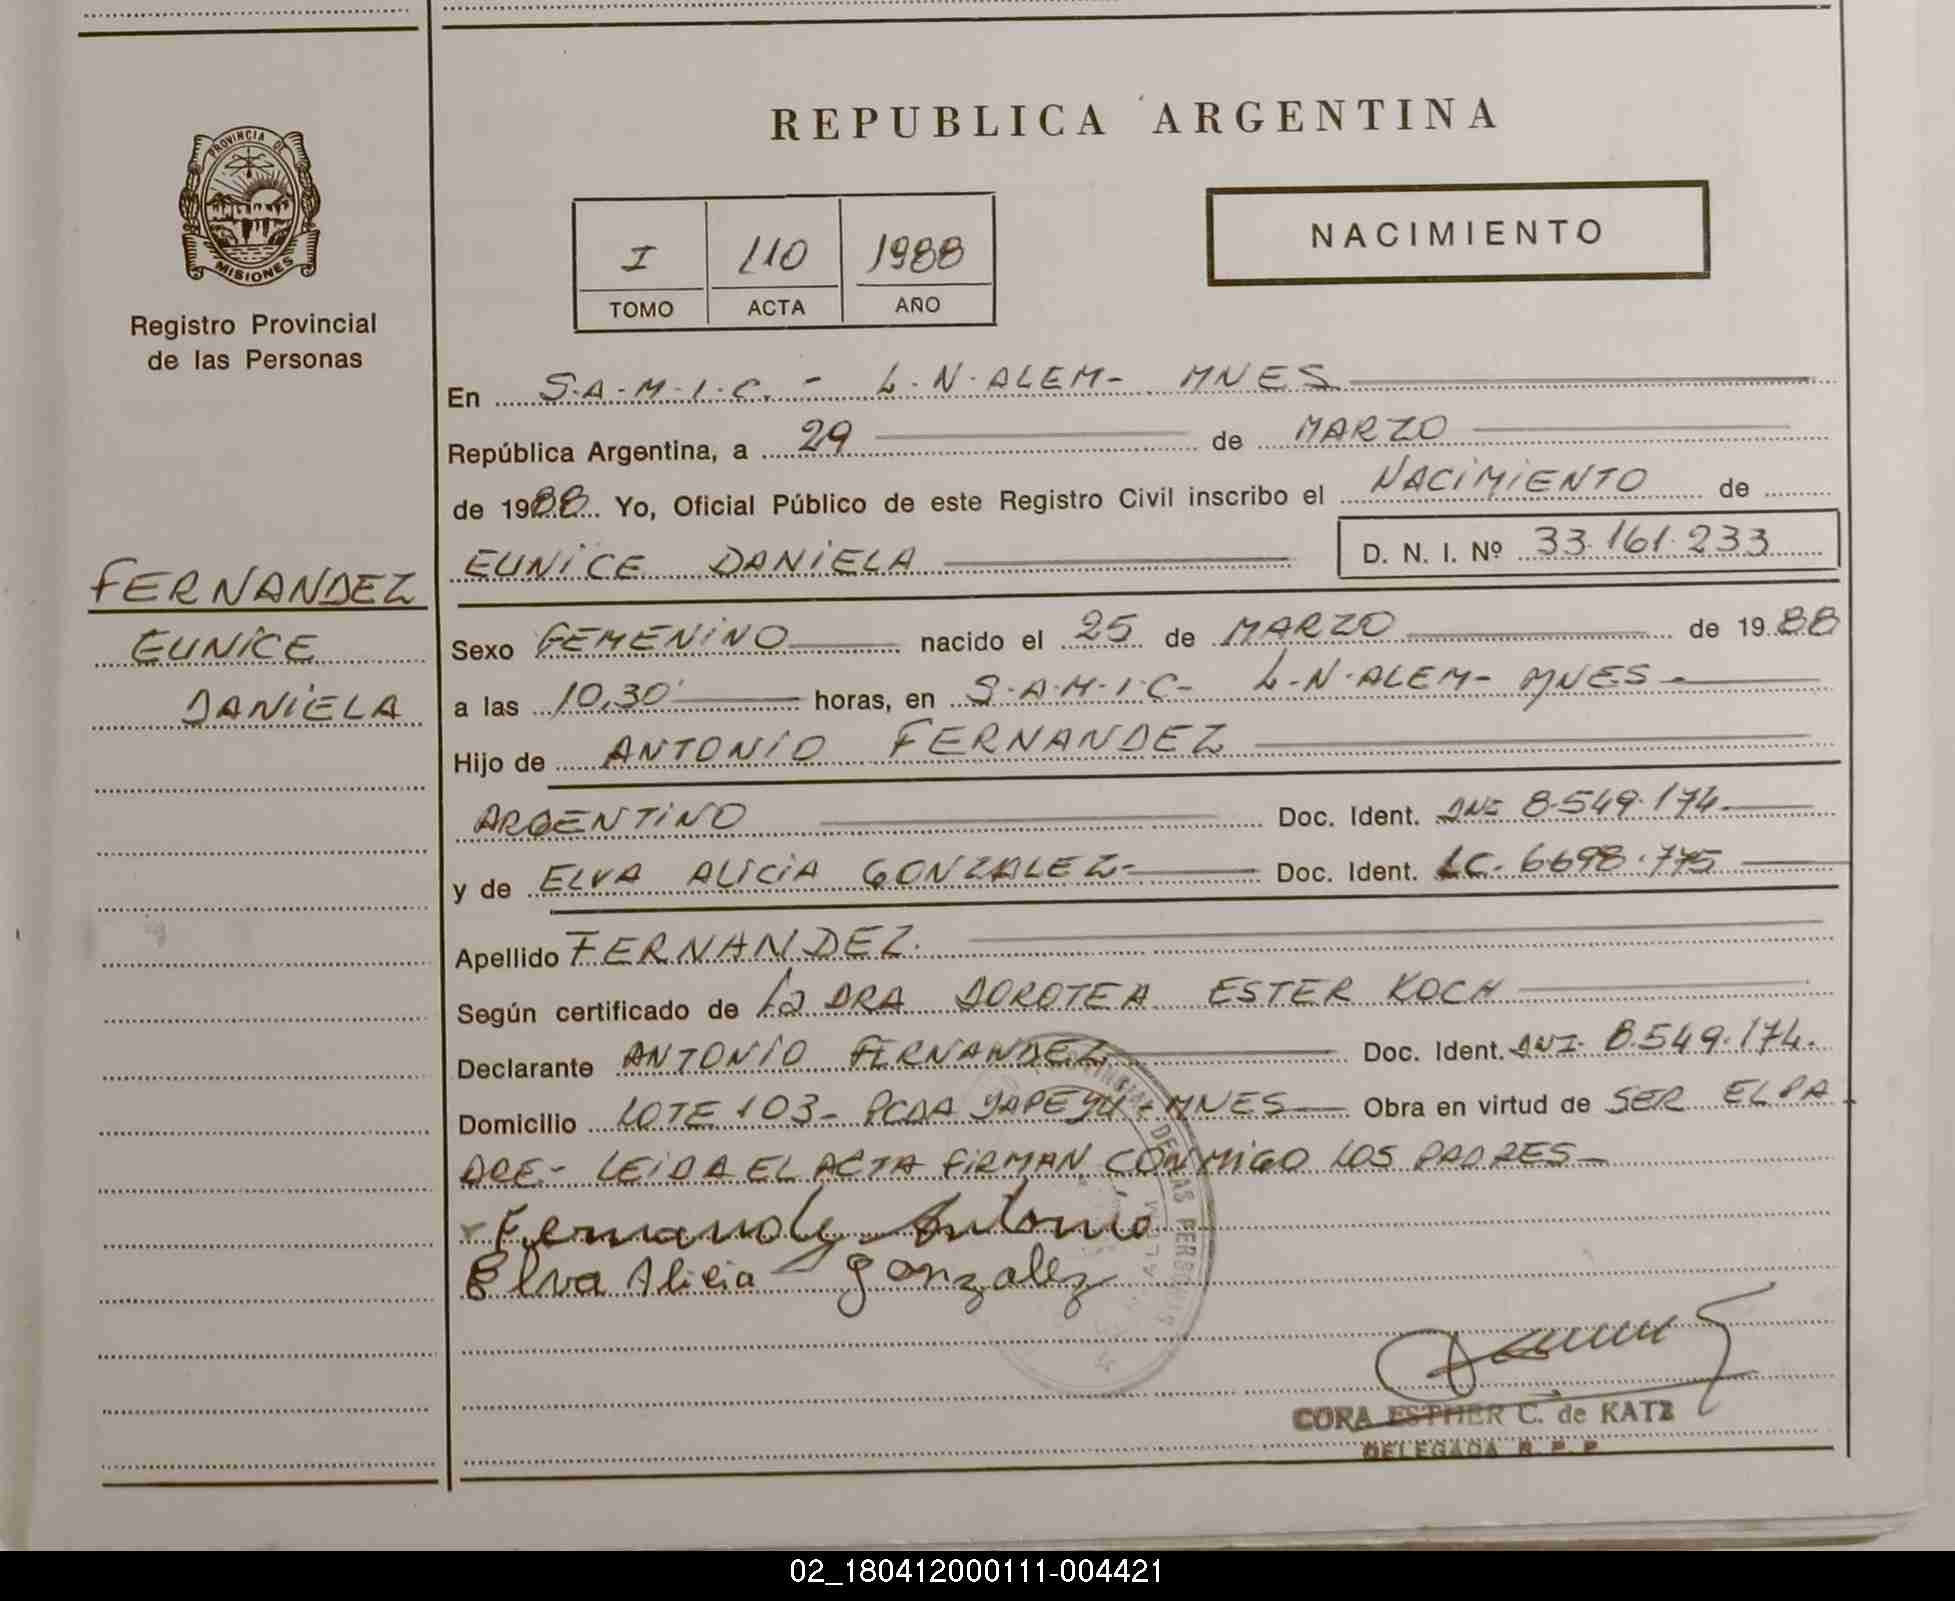 PROVINCIA DE
MISIONES
Registro Provincial
de las Personas
FERNANDEZ
EUNICE
DANIELA
REPUBLICA ARGENTINA
I 110 1988
TOMO ACTA AÑO
NACIMIENTO
En S.A.M.I.C. - L.N.ALEM- MNES
República Argentina, a 29 de MARZO
de 1988 Yo, Oficial Público de este Registro Civil inscribo el NACIMIENTO de
EUNICE DANIELA D. N. I. Nº 33.161.233
Sexo FEMENINO nacido el 25 de MARZO de 1988
a las 10,30' horas, en S.A.M.I.C- L-N-ALEM- MNES-
Hijo de ANTONIO FERNANDEZ
ARGENTINO Doc. Ident. DNI 8.549.174
y de ELVA ALICIA GONZALEZ- Doc. Ident. LC. 6698.775
Apellido FERNANDEZ.
Según certificado de La DRA DOROTEA ESTER KOCH
Declarante ANTONIO FERNANDEZ Doc. Ident. DNI. 8.549.174.
Domicilio LOTE 103- PCDA YAPEYU - MNES Obra en virtud de SER EL PA
DRE- LEIDA EL ACTA FIRMAN CONMIGO LOS PADRES-
Fernande Antonio
Elva Alicia Gonzalez
CORA ESTHER C. de KATZ
DELEGADA R. P. P.
02_180412000111-004421